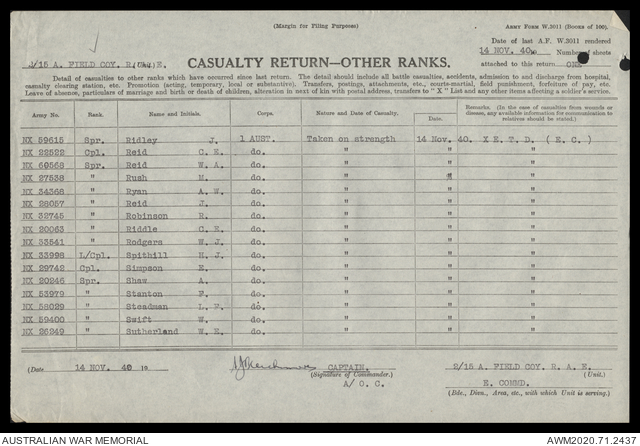 (Margin for Filing Purposes)
ARMY FORM W.3011 (BOOKS OF 100).
Date of last A.F. W.3011 rendered
14 NOV. 40. Number of sheets
attached to this return ONE
2/15 A. FIELD COY. R.A.E.
CASUALTY RETURN—OTHER RANKS.
Detail of casualties to other ranks which have occurred since last return. The detail should include all battle casualties, accidents, admission to and discharge from hospital,
casualty clearing station, etc. Promotion (acting, temporary, local or substantive). Transfers, postings, attachments, etc., courts-martial, field punishment, forfeiture of pay, etc.
Leave of absence, particulars of marriage and birth or death of children, alteration in next of kin with postal address, transfers to "X" List and any other items affecting a soldier's service.
Army No. Rank. Name and Initials. Corps. Nature and Date of Casualty. Date. Remarks. (In the case of casualties from wounds or disease, any available information for communication to relatives should be stated.)
NX 59615 Spr. Ridley J. 1 AUST. Taken on strength 14 Nov. 40. X E. T. D. ( E. C.)
NX 22522 Cpl. Reid C. E. do. " " "
NX 60568 Spr. Reid W. A. do. " " "
NX 27538 " Rush M. do. " " "
NX 34368 " Ryan A. W. do. " " "
NX 28057 " Reid J. do. " " "
NX 32745 " Robinson R. do. " " "
NX 20063 " Riddle C. E. do. " " "
NX 33541 " Rodgers W. J. do. " " "
NX 33998 L/Cpl. Spithill H. J. do. " " "
NX 29742 Cpl. Simpson E. do. " " "
NX 20246 Spr. Shaw A. do. " " "
NX 53979 " Stanton F. do. " " "
NX 58029 " Steadman L. F. do. " " "
NX 59400 " Swift W. do. " " "
NX 26249 " Sutherland W. E. do. " " "
(Date 14 NOV. 40 19 CAPTAIN. 2/15 A. FIELD COY. R. A. E.
(Signature of Commander.) (Unit.)
A/ O. C. E. COMMD.
(Bde., Divn., Area, etc., with which Unit is serving.)
AUSTRALIAN WAR MEMORIAL AWM2020.71.2437